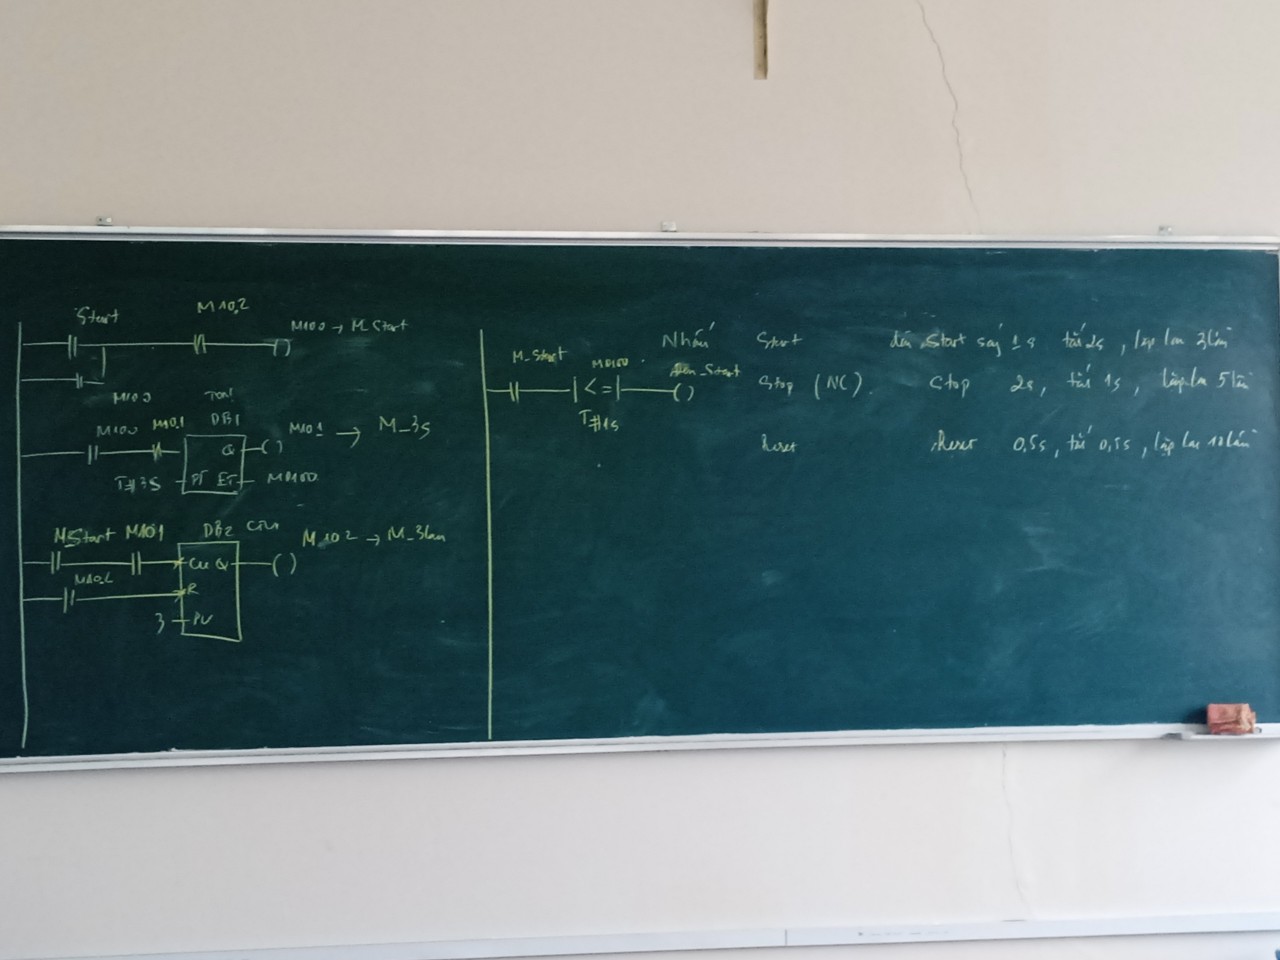 Start M10.2
M10.0 → M_Start
M10.0
TON
M10.0 M10.1 DB1
Q M10.1 → M_3s
T#3s PT ET MD100
M_Start M10.1 DB2 CTU
CU Q M10.2 → M_3lần
M10.2
R
3 PV
M_Start MD100 Đèn_Start
<=
T#1s
Nhấn Start đèn Start sáng 1s tắt 2s, lặp lại 3 lần
Stop (NC). Stop 2s, tắt 1s, lặp lại 5 lần
Reset Reset 0,5s, tắt 0,5s, lặp lại 10 lần